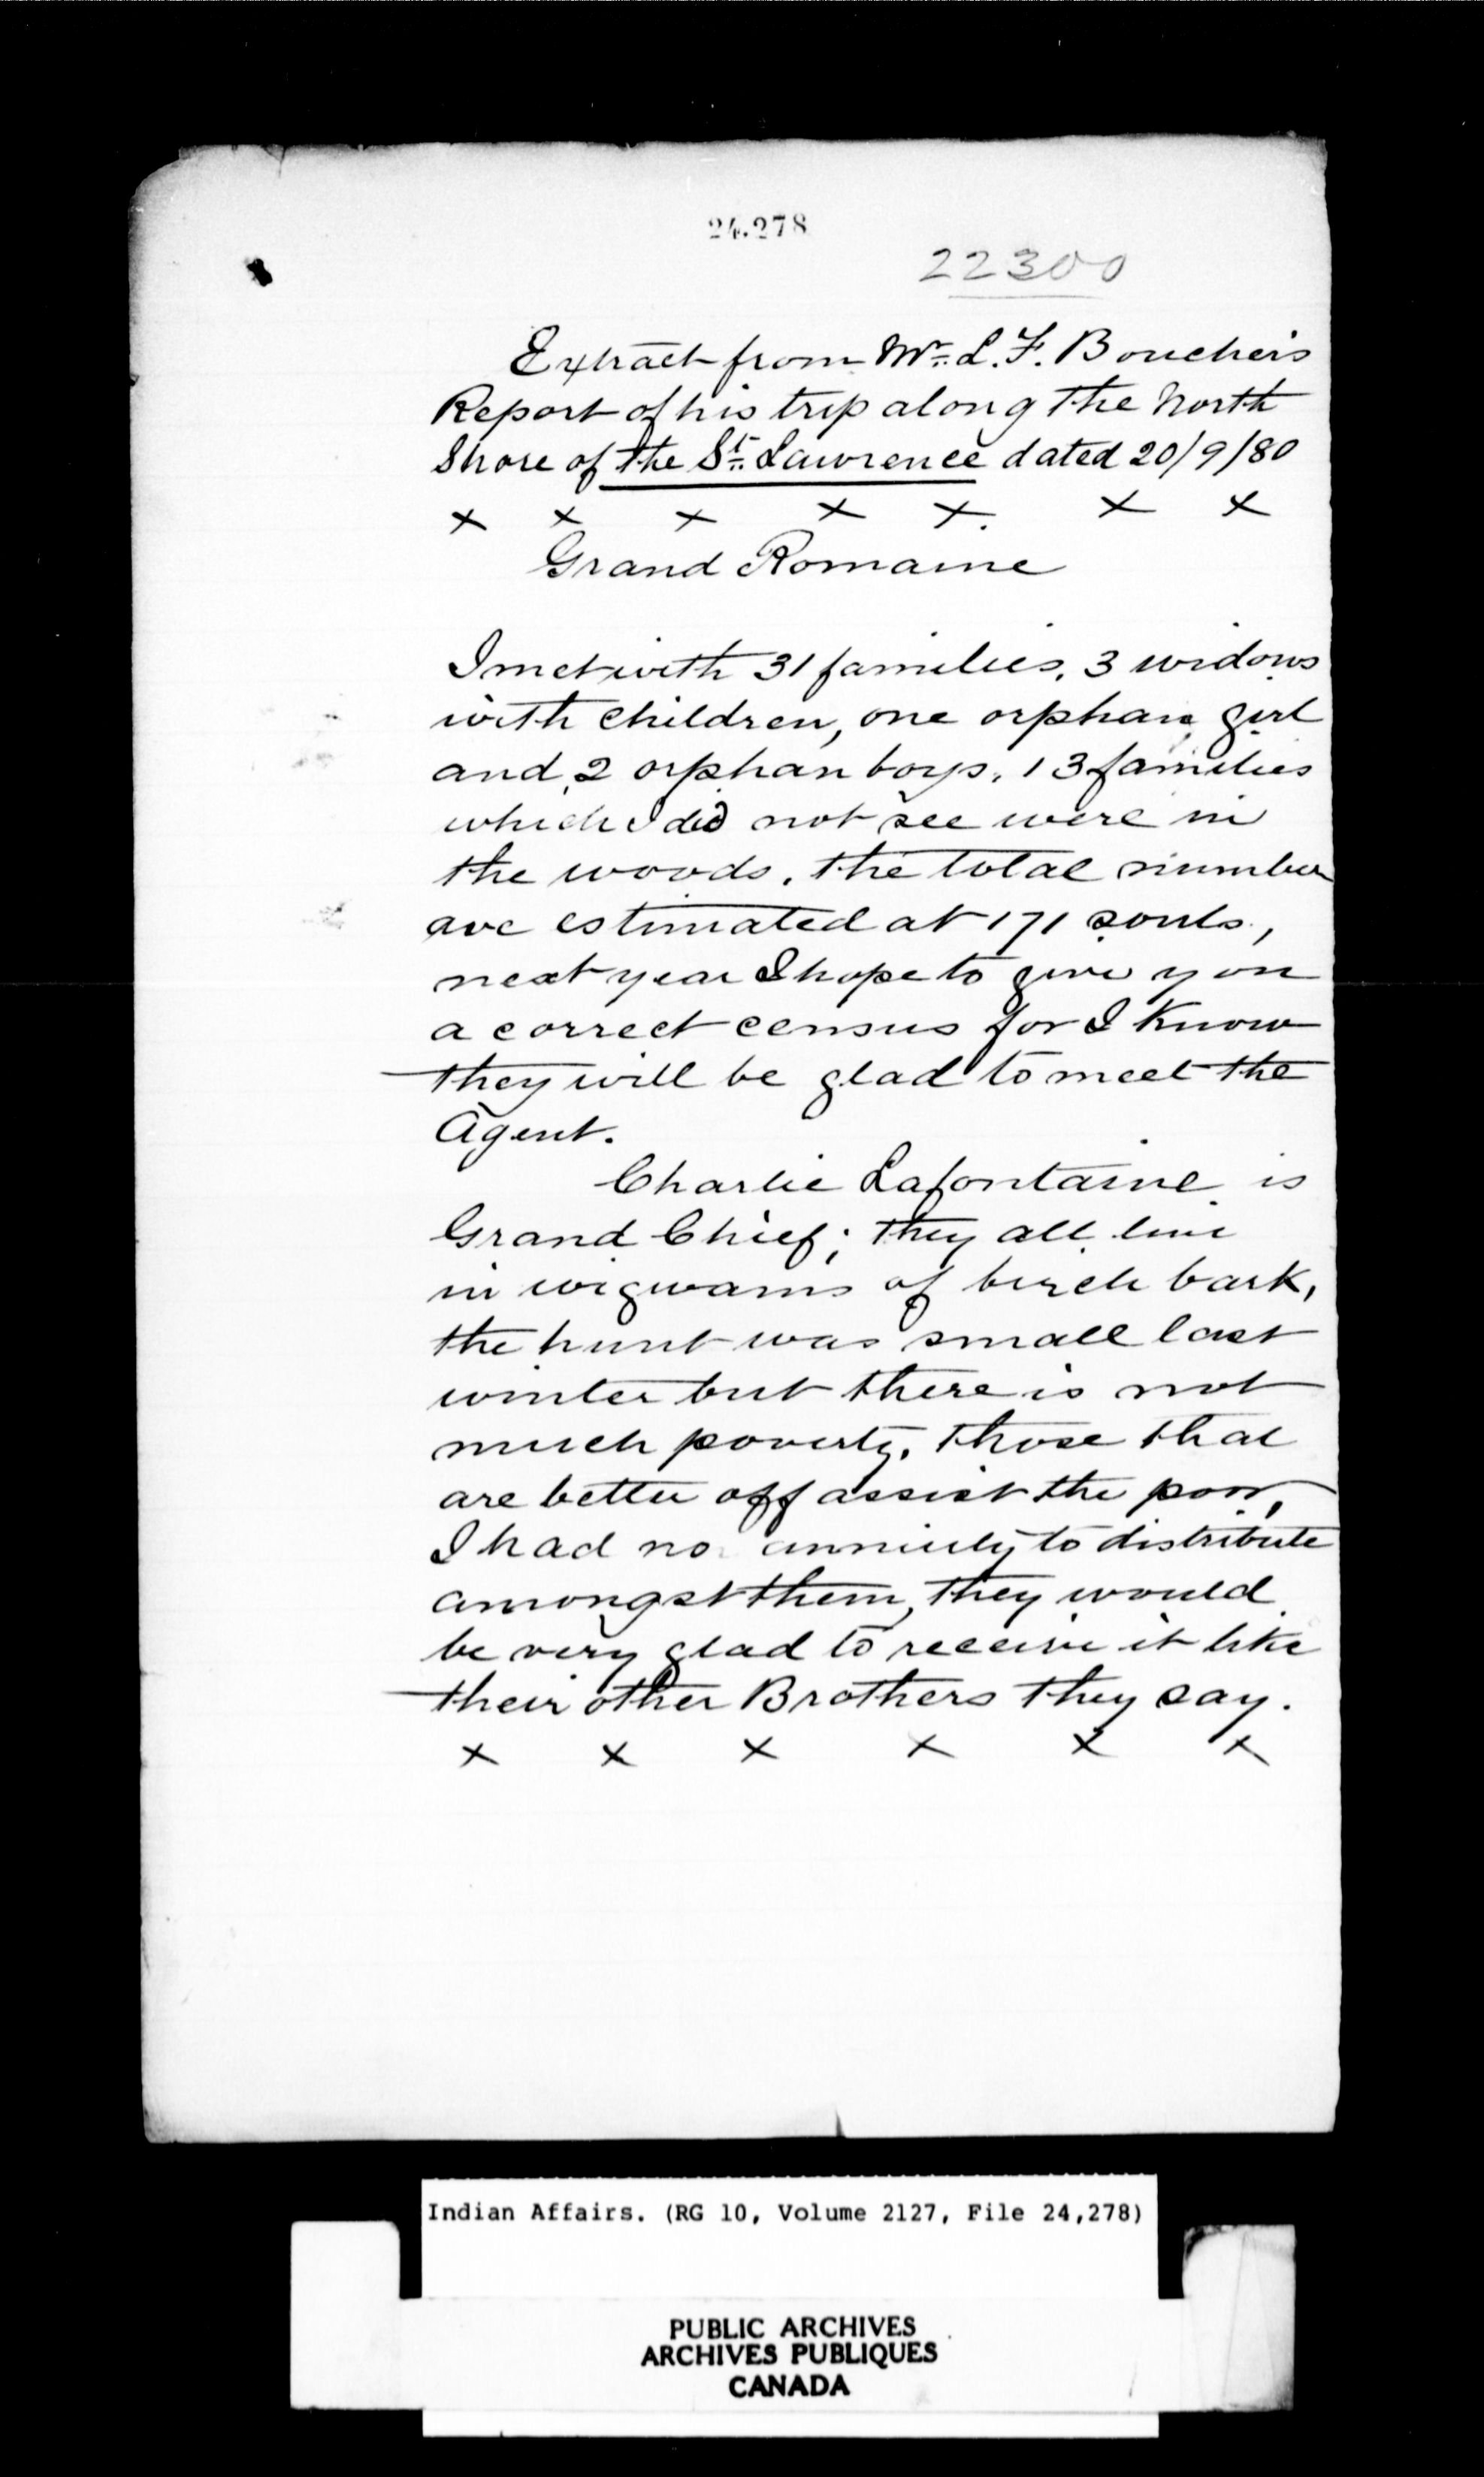 24.278
22300
Extract from Mr. L. F. Boucher's
Report of his trip along the North
Shore of the St. Lawrence dated 20/9/80
x x x x x. x x
Grand Romaine
I met with 31 families, 3 widows
with children, one orphan girl
and 2 orphan boys, 13 families
which I did not see were in
the woods, the total number
are estimated at 171 souls,
next year I hope to give you
a correct census for I know
they will be glad to meet the
Agent.
Charlie Lafontaine is
Grand Chief; they all live
in wigwams of birch bark,
the hunt was small last
winter but there is not
much poverty, those that
are better off assist the poor,
I had no annuity to distribute
amongst them, they would
be very glad to receive it like
their other Brothers they say.
x x x x x x
Indian Affairs. (RG 10, Volume 2127, File 24,278)
PUBLIC ARCHIVES
ARCHIVES PUBLIQUES
CANADA